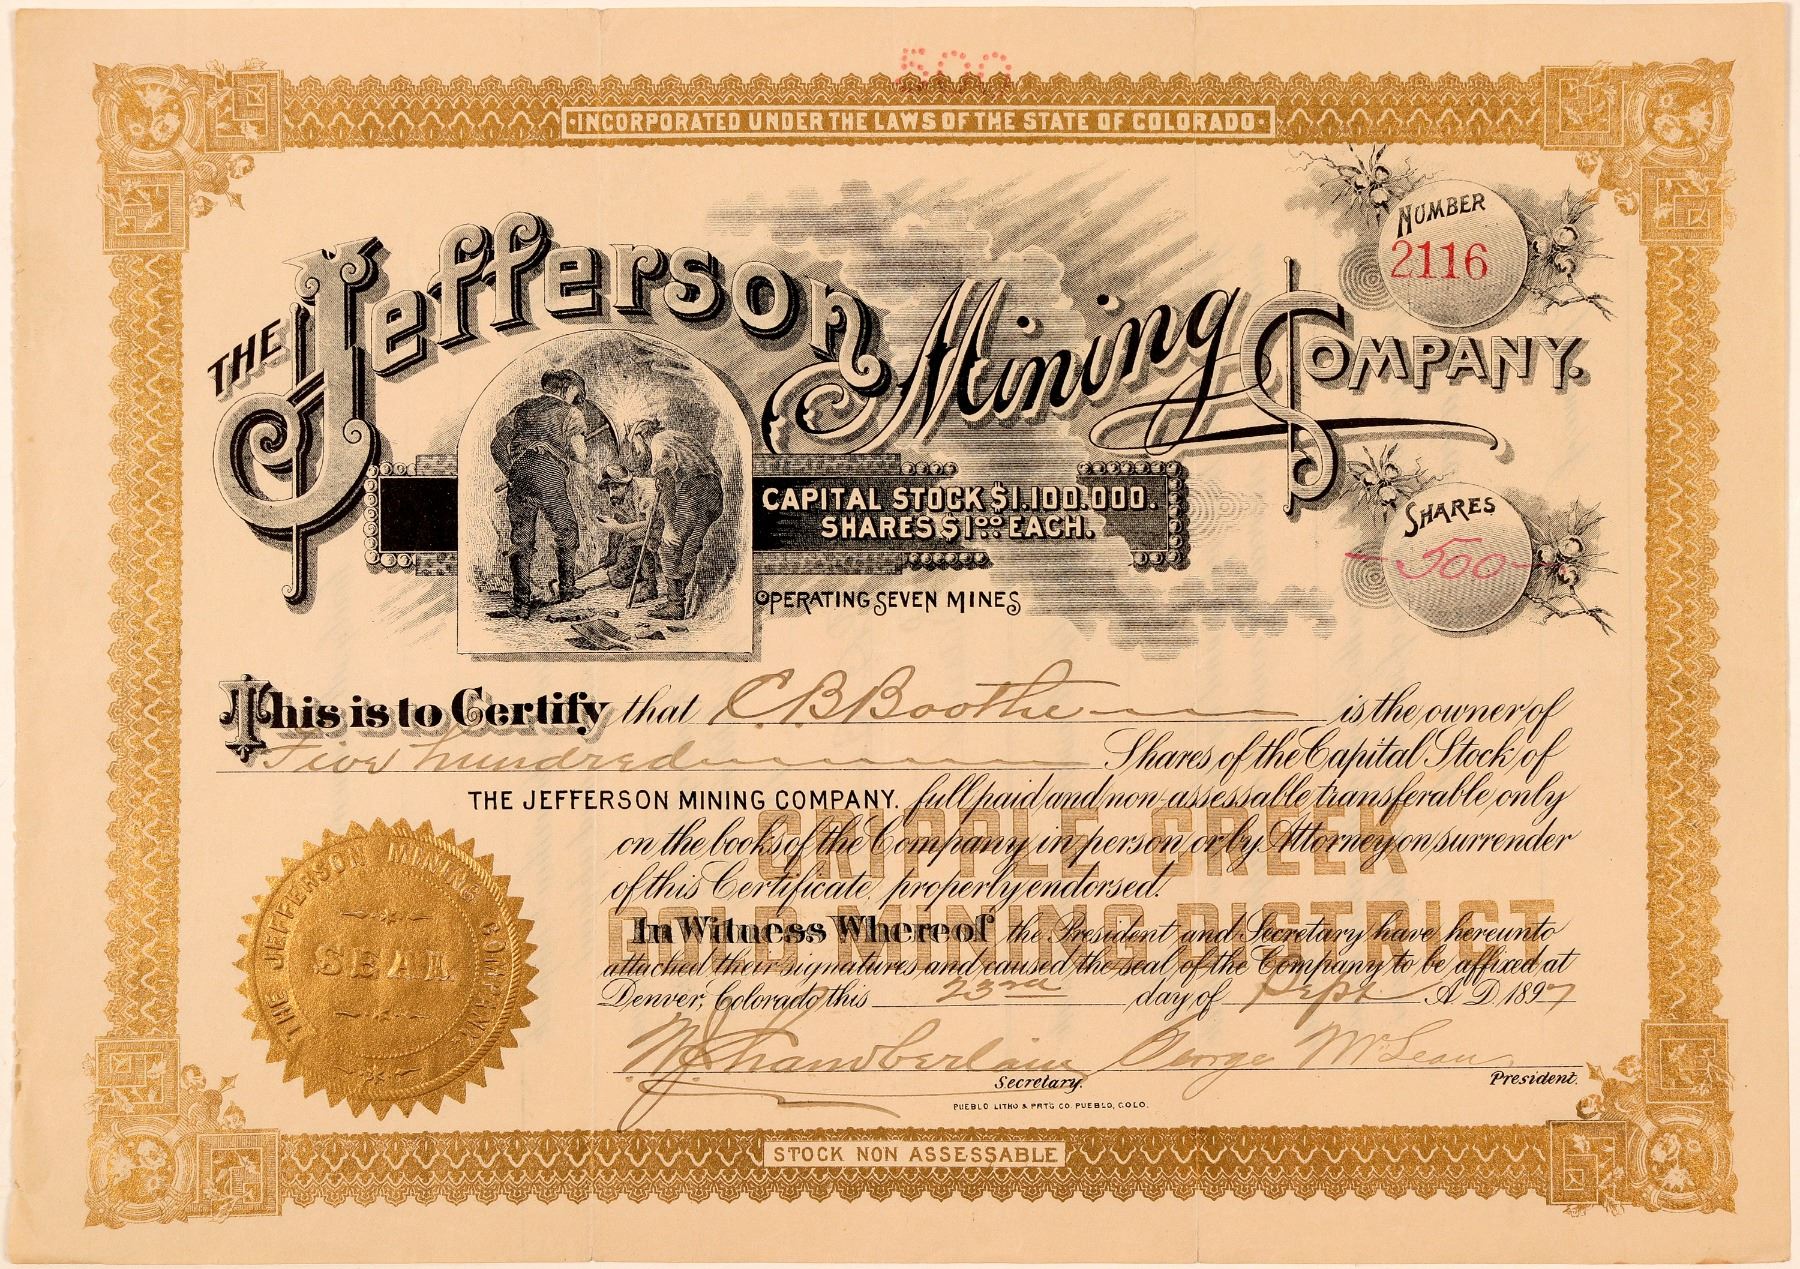 500
·INCORPORATED UNDER THE LAWS OF THE STATE OF COLORADO·
NUMBER
2116
THE Jefferson Mining COMPANY.
CAPITAL STOCK $1.100.000.
SHARES $1.00 EACH.
SHARES
500
OPERATING SEVEN MINES
This is to Certify that C. B. Boothe is the owner of
Five hundred Shares of the Capital Stock of
THE JEFFERSON MINING COMPANY. full paid and non-assessable transferable only
on the books of the Company in person or by Attorney on surrender
of this Certificate, properly endorsed.
CRIPPLE CREEK
GOLD MINING DISTRICT
In Witness Whereof the President and Secretary have hereunto
attached their signatures and caused the seal of the Company to be affixed at
Denver, Colorado this 23rd day of Sept A.D. 1897
THE JEFFERSON MINING COMPANY
SEAL
W. J. Chamberlain George McLean
Secretary. President.
PUEBLO LITHO & PRT'G CO. PUEBLO, COLO.
STOCK NON ASSESSABLE